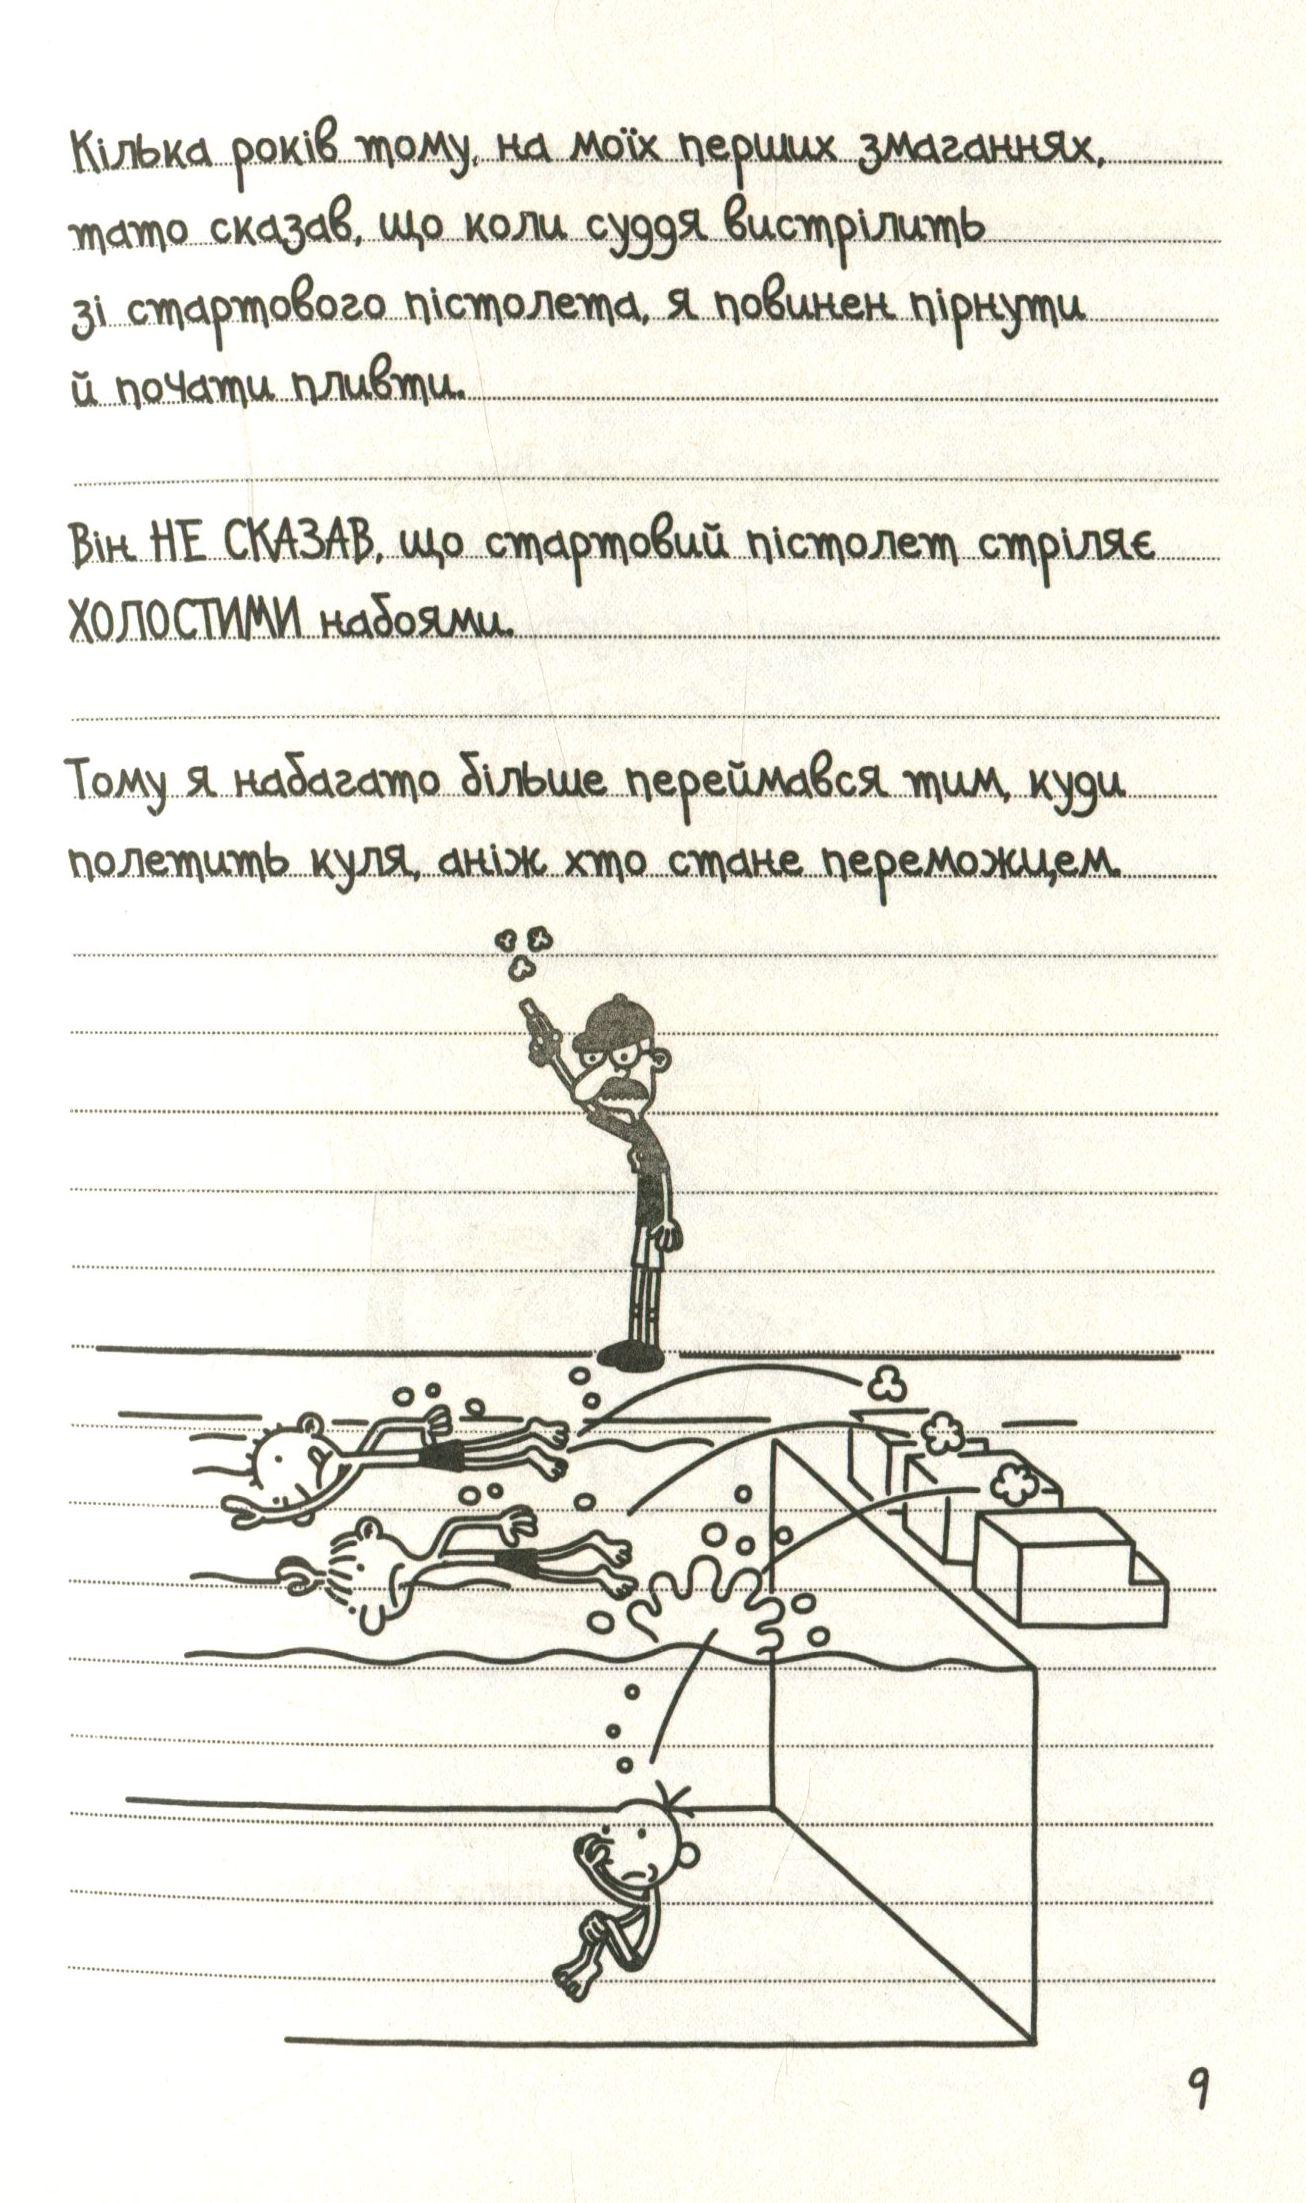 Кілька років тому, на моїх перших змаганнях,
тато сказав, що коли суддя вистрілить
зі стартового пістолета, я повинен пірнути
й почати пливти.
Він НЕ СКАЗАВ, що стартовий пістолет стріляє
ХОЛОСТИМИ набоями.
Тому я набагато більше переймався тим, куди
полетить куля, аніж хто стане переможцем.
9